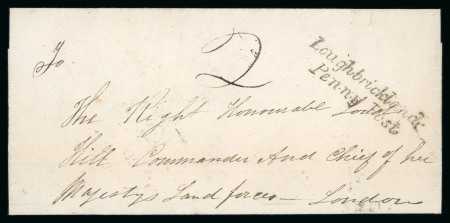 To
2
Loughbrickland
Penny Post
The Right Honourable Lord
Hill Commander And Chief of her
Majestys Land forces – London